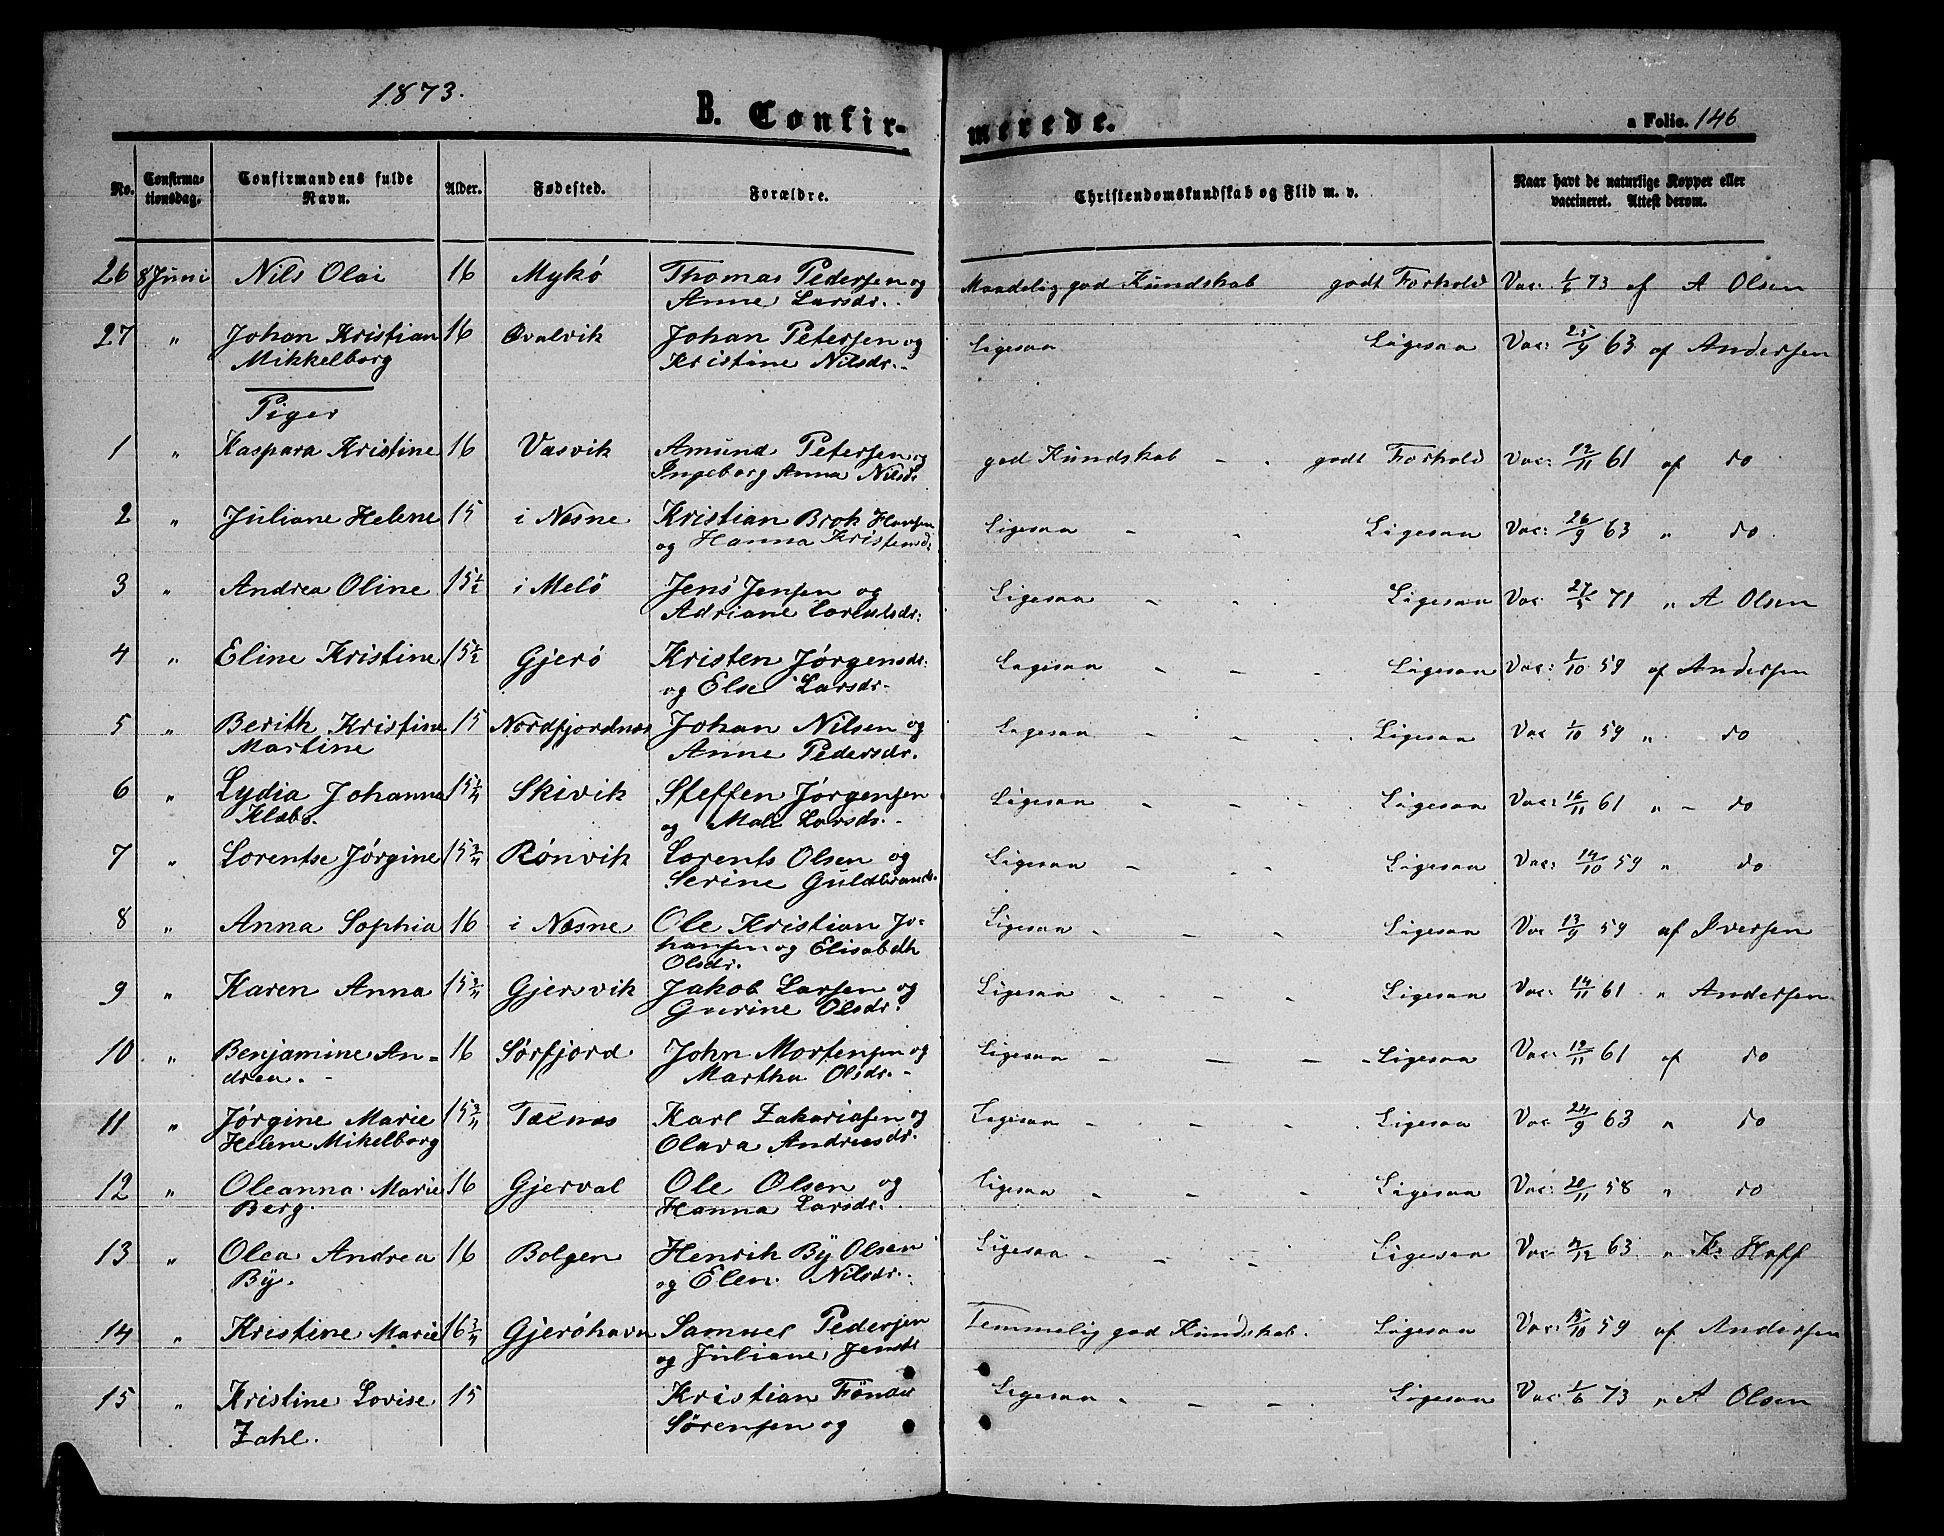 1873.
B. Confirmerede.
a Folio. 146
No. Confirmationsdag. Confirmandens fulde Navn. Alder. Fødested. Forældre. Christendomskundskab og Flid m. v. Naar havt de naturlige Kopper eller vaccineret. Attest derom.
26 8 Juni Nils Olai 16 Mykö Thomas Pedersen og Maadelig god Kundskab godt Forhold Vac: 1/6 73 af A Olsen
Anne Larsdr.
27 " Johan Kristian 16 Qvalvik Johan Petersen og Ligesaa Ligesaa Vac: 25/9 63 af Andersen
Mikkelborg Kristine Nilsdr.
Piger
1 " Kaspara Kristine 16 Vasvik Amund Petersen og god Kundskab - godt Forhold Vac: 12/11 61 af do
Ingeborg Anna Nilsdr
2 " Juliane Helene 15 i Nesne Kristian Brok Hansen Ligesaa - - Ligesaa Vac: 26/9 63 " do.
og Hanna Kristensd:
3 " Andrea Oline 15 1/2 i Melö Jens Jensen og Ligesaa - - Ligesaa Vac 27/5 71 " A Olsen
Adriane Lorentsdr:
4 " Eline Kristine 15 1/2 Gjerö Kristen Jørgensdr: Ligesaa - - - Ligesaa Vac: 1/10 59 af Andersen
og Else Larsdr-
5 " Berith Kristine 15 Nordfjordnæs Johan Nilsen og Ligesaa - - - Ligesaa Vac 1/10 59 " do
Martine Anne Pedersdr.
6 " Lydia Johanna 15 1/4 Skivik Steffen Jørgensen Ligesaa - - - Ligesaa Vac: 16/11 61 " - do
Klæbo. og Mali Larsdr.-
7 " Lorentse Jørgine 15 3/4 Rönvik Lorents Olsen og Ligesaa - - - Ligesaa Vac: 14/10 59 " do
Serine Guldbrands.
8 " Anna Sophia 16 i Nesne Ole Kristian Jo- Ligesaa - - - Ligesaa Vac 13/9 59 af Iversen
hansen og Elisabeth
Olsdr.
9 " Karen Anna 15 3/4 Gjersvik Jakob Larsen og Ligesaa - - - Ligesaa Vac: 14/11 61 " Andersen
Gurine Olsdr.
10 " Benjamine An- 16 Sørfjord John Mortensen og Ligesaa - - - Ligesaa Vac: 12/11 61 af do
drea. Martha Olsdr.-
11 " Jørgine Marie 15 3/4 Tælnæs Karl Zakariasen og Ligesaa - - - Ligesaa Vac 24/9 63 " do
Helene Mikelborg Olava Andreasdr.
12 " Oleanna Marie 16 Gjerval Ole Olsen og Ligesaa - - - Ligesaa Vac: 20/11 58 " do
Berg. Hanna Larsdr.
13 " Olea Andrea 16 Bolgen Henrik Bÿ Olsen Ligesaa - - - Ligesaa Vac: 4/12 63 " K: Hoff
Bÿ. og Elen Nilsdr.
14 " Kristine Marie 16 3/4 Gjeröhavn Samuel Pedersen Temmelig god Kundskab. Ligesaa Vac: 15/10 59 af Andersen
og Juliane Jensdr
15 " Kristine Lovise 15 Kristian Fönder Ligesaa - - - Ligesaa Vac: 1/6 73 " A Olsen
Zahl. Sörensen og